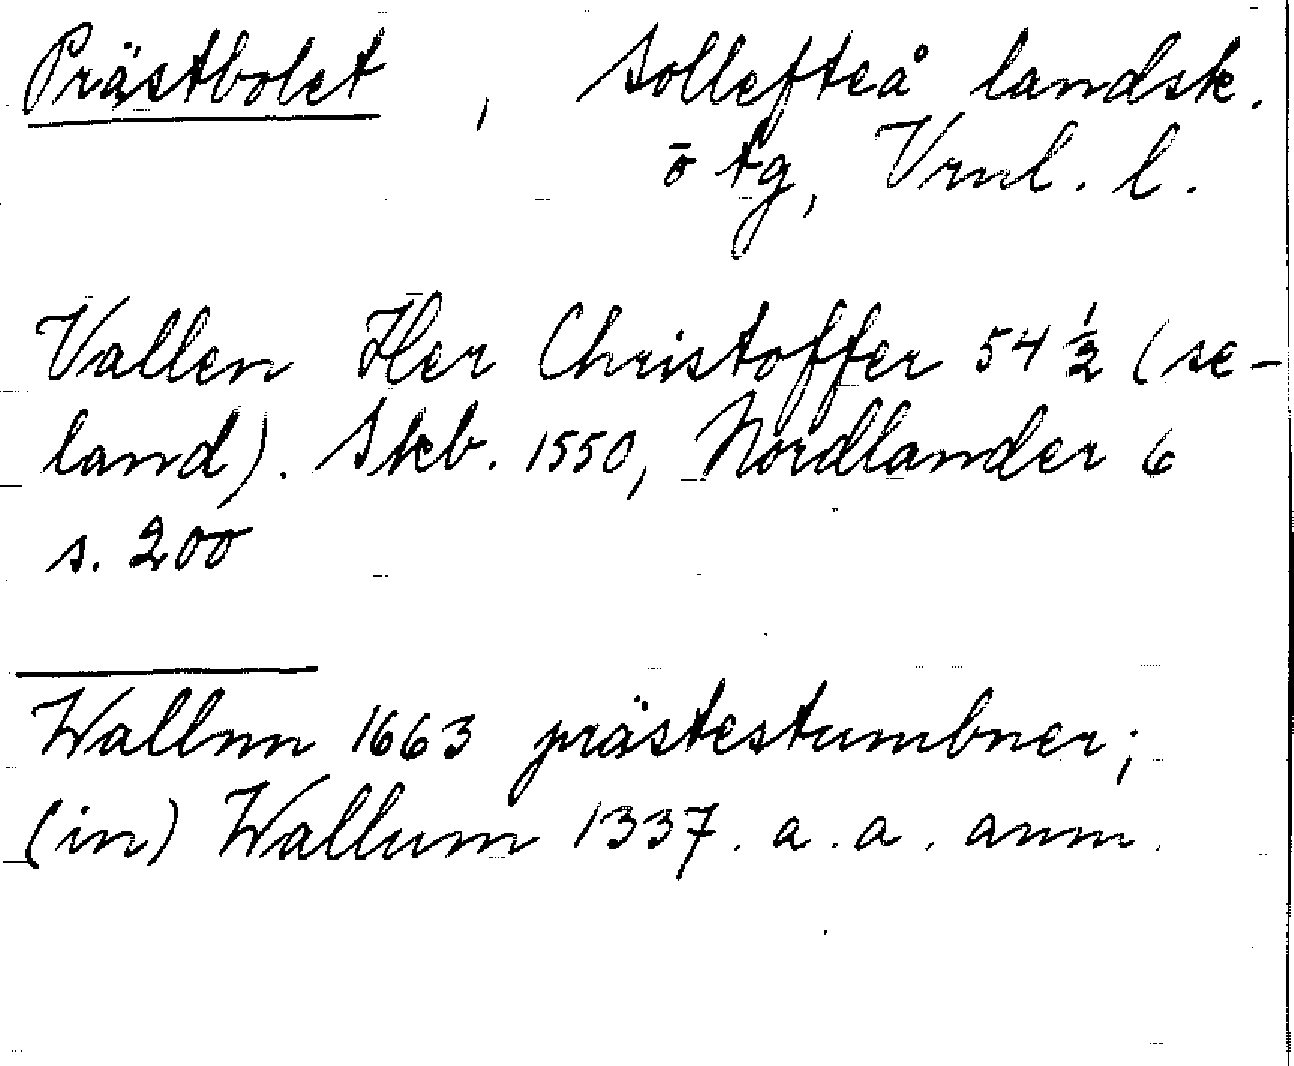 Prästbolet , Sollefteå landsk.
ö tg, Vrnl. l.
Vallen Her Christoffer 54 ½ (se-
land). Skb. 1550, Nordlander 6
s. 200
Wallnn 1663 prästestumbner;
(in) Wallum 1337. a. a. anm.